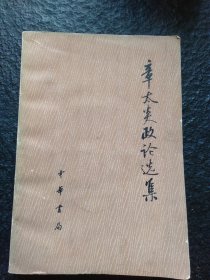 章太炎政论选集
中华书局